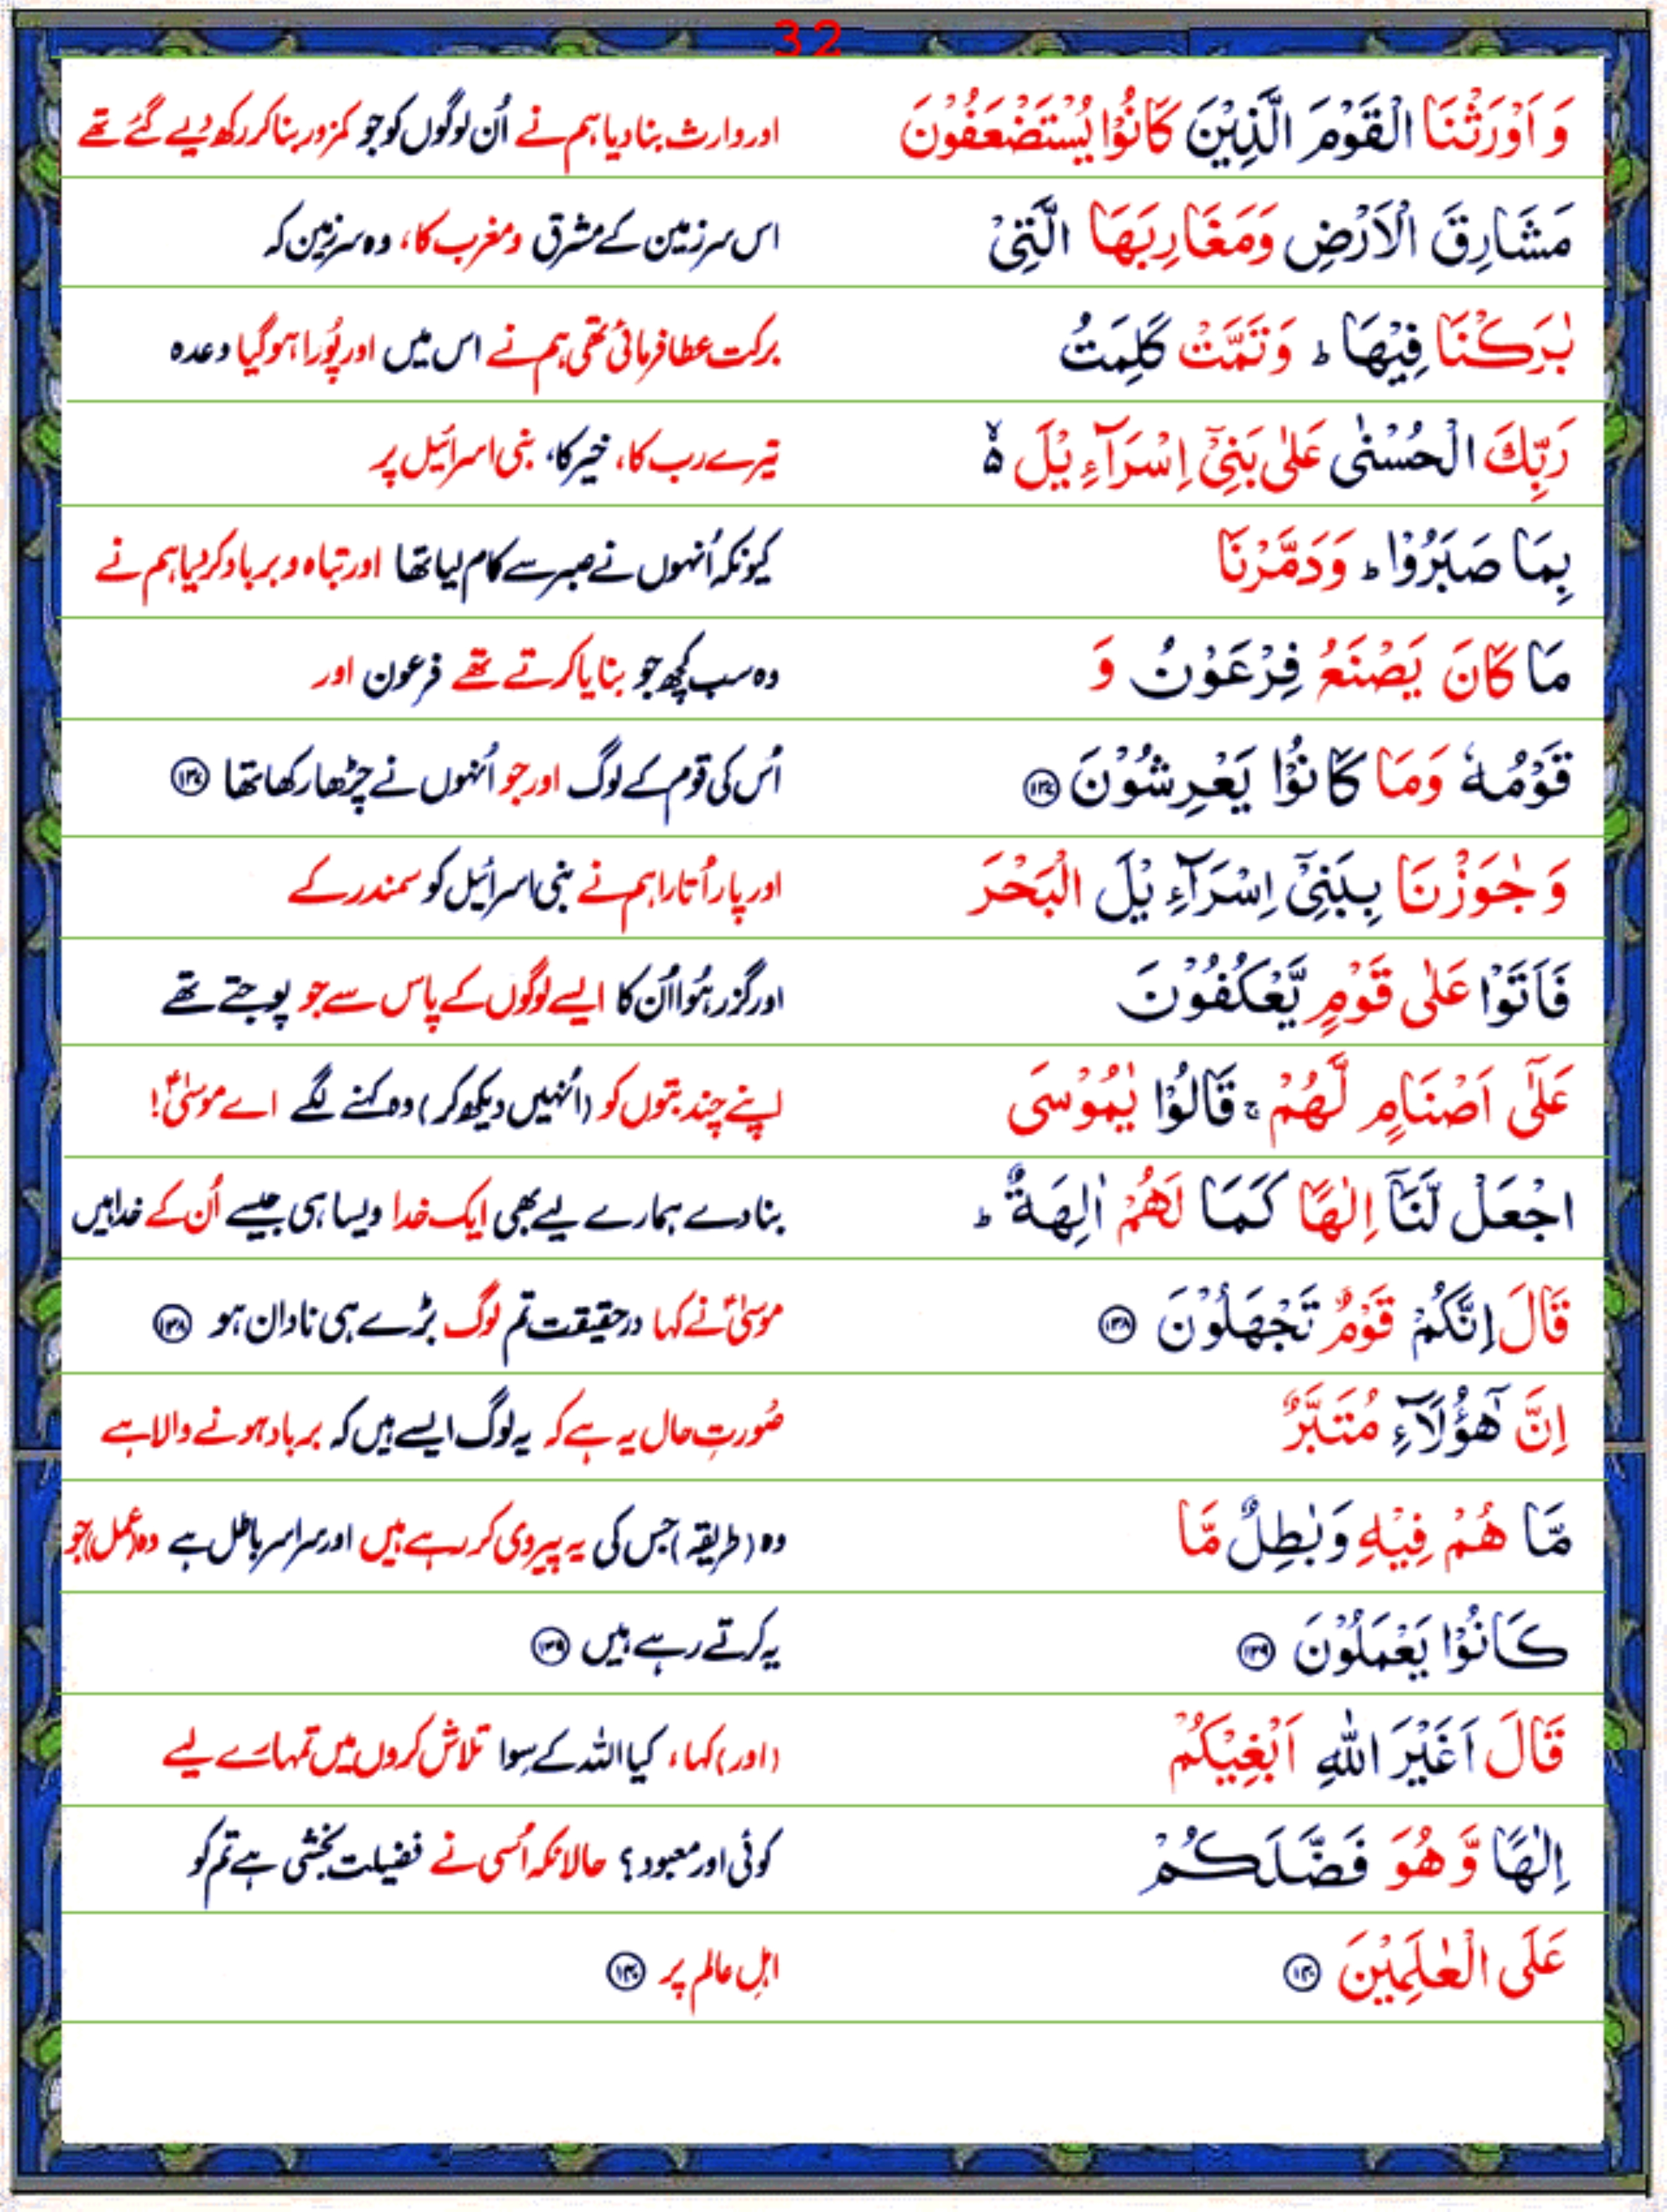 32
وَ اَوْرَثْنَا الْقَوْمَ الَّذِيْنَ كَانُوْا يُسْتَضْعَفُوْنَ اور وارث بنا دیا ہم نے اُن لوگوں کو جو کمزور بنا کر رکھ دیے گئے تھے
مَشَارِقَ الْاَرْضِ وَمَغَارِبَهَا الَّتِيْ اس سرزمین کے مشرق ومغرب کا، وہ سرزمین کہ
بٰرَكْنَا فِيْهَا ؕ وَتَمَّتْ كَلِمَتُ برکت عطا فرمائی تھی ہم نے اس میں اور پُورا ہوگیا وعدہ
رَبِّكَ الْحُسْنٰى عَلٰى بَنِيْٓ اِسْرَآءِيْلَ ۙ۬ تیرے رب کا، خیر کا، بنی اسرائیل پر
بِمَا صَبَرُوْا ؕ وَدَمَّرْنَا کیونکہ اُنہوں نے صبر سے کام لیا تھا اور تباہ و برباد کردیا ہم نے
مَا كَانَ يَصْنَعُ فِرْعَوْنُ وَ وہ سب کچھ جو بنایا کرتے تھے فرعون اور
قَوْمُهٗ وَمَا كَانُوْا يَعْرِشُوْنَ ۝۱۳۷ اُس کی قوم کے لوگ اور جو اُنہوں نے چڑھا رکھا تھا ۝۱۳۷
وَ جٰوَزْنَا بِبَنِيْٓ اِسْرَآءِيْلَ الْبَحْرَ اور پار اُتارا ہم نے بنی اسرائیل کو سمندر کے
فَاَتَوْا عَلٰى قَوْمٍ يَّعْكُفُوْنَ اور گزر ہُوا اُن کا ایسے لوگوں کے پاس سے جو پوجتے تھے
عَلٰٓى اَصْنَامٍ لَّهُمْ ۚ قَالُوْا يٰمُوْسَى اپنے چند بتوں کو (اُنہیں دیکھ کر) وہ کہنے لگے اے موسیٰؑ!
اجْعَلْ لَّنَآ اِلٰهًا كَمَا لَهُمْ اٰلِهَةٌ ؕ بنادے ہمارے لیے بھی ایک خدا ویسا ہی جیسے اُن کے خدا ہیں
قَالَ اِنَّكُمْ قَوْمٌ تَجْهَلُوْنَ ۝۱۳۸ موسیٰؑ نے کہا درحقیقت تم لوگ بڑے ہی نادان ہو ۝۱۳۸
اِنَّ هٰٓؤُلَآءِ مُتَبَّرٌ صُورتِ حال یہ ہے کہ یہ لوگ ایسے ہیں کہ برباد ہونے والا ہے
مَّا هُمْ فِيْهِ وَبٰطِلٌ مَّا وہ (طریقہ) جس کی یہ پیروی کر رہے ہیں اور سراسر باطل ہے وہ (عمل) جو
كَانُوْا يَعْمَلُوْنَ ۝۱۳۹ یہ کرتے رہے ہیں ۝۱۳۹
قَالَ اَغَيْرَ اللّٰهِ اَبْغِيْكُمْ (اور) کہا، کیا اللہ کے سوا تلاش کروں میں تمہارے لیے
اِلٰهًا وَّ هُوَ فَضَّلَكُمْ کوئی اور معبود؟ حالانکہ اُسی نے فضیلت بخشی ہے تم کو
عَلَى الْعٰلَمِيْنَ ۝۱۴۰ اہلِ عالم پر ۝۱۴۰